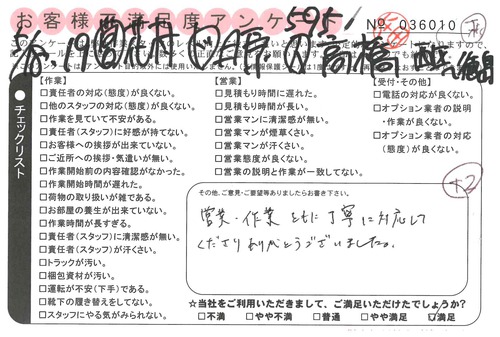 お客様不満足度アンケ
No 036010
【作業】
□責任者の対応(態度)が良くない。
□他のスタッフの対応(態度)が良くない。
□作業を見ていて不安がある。
□責任者(スタッフ)に好感が持てない。
□お客様への挨拶が出来ていない。
□ご近所への挨拶・気遣いが無い。
□作業開始前の内容確認がなかった。
□作業開始時間が遅れた。
□荷物の取り扱いが雑である。
□お部屋の養生が出来ていない。
□作業時間が長すぎる。
□責任者(スタッフ)に清潔感が無い。
□責任者(スタッフ)が汗くさい。
□トラックが汚い。
□梱包資材が汚い。
□運転が不安(下手)である。
□靴下の履き替えをしてない。
□スタッフにやる気がみられない。
【営業】
□見積もり時間に遅れた。
□見積もり時間が長い。
□営業マンに清潔感が無い。
□営業マンが煙草くさい。
□営業マンが汗くさい。
□営業態度が良くない。
□営業の説明と作業が一致してない。
【受付・その他】
□電話の対応が良くない。
□オプション業者の説明
・作業が良くない。
□オプション業者の対応
(態度)が良くない。
チェックリスト
+2
その他、ご意見・ご要望等ありましたらお書き下さい。
営業・作業ともに丁寧に対応して
くださりありがとうございました。
☆当社をご利用いただきまして、ご満足いただけたでしょうか?
□不満 □やや不満 □普通 □やや満足 ☑満足